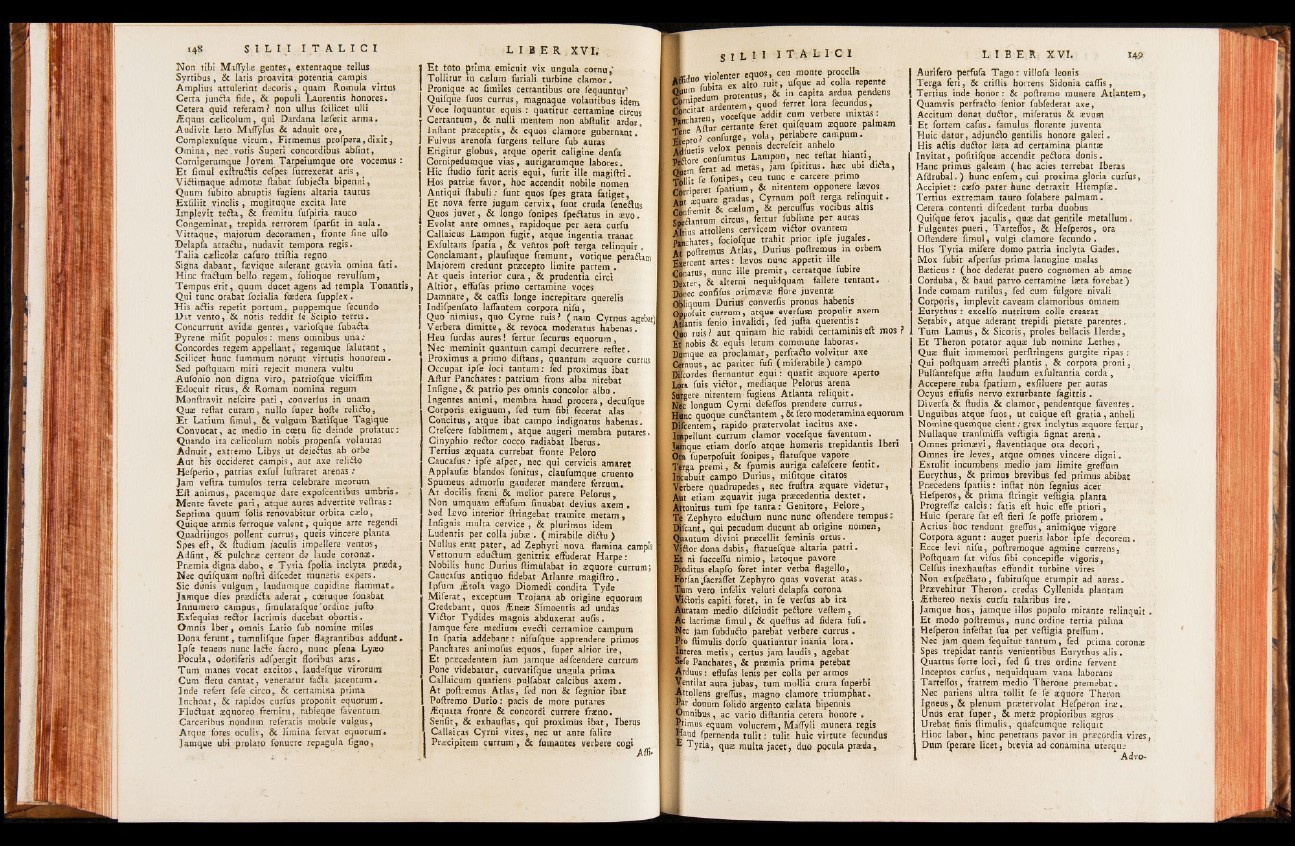 148 SILII ITALICI
Non tibi Maſſylæ gentes, extentaque tellus
Syrtibus, & latis proavita potentia campis
Amplius attulerint decoris, quam Romula virtus
Certa juncta fide, & populi Laurentis honores.
Cetera quid referam? non ullus ſcilicet ulli
Æquus cælicolum, qui Dardana læſerit arma.
Audivit læto Maſſyſus & adnuit ore,
Complexuſque virum, Firmemus proſpera, dixit,
Omina, nec votis Superi concordibus abſint,
Cornigerumque Jovem Tarpeiumque ore vocemus:
Et ſimul exſtructis ceſpes ſurrexerat aris,
Victimaque admotæ ſtabat ſubjecta bipenni,
Quum ſubito abruptis fugiens altaria taurus
Exſiliit vinclis, mugituque excita late
Implevit tecta, & fremitu ſuſpiria rauco
Congeminat, trepida terrorem ſparſit in aula.
Vittaque, majorum decoramen, fronte ſine ullo
Delapſa attactu, nudavit tempora regis.
Talia cælicolæ caſuro triſtia regno
Signa dabant, ſævique aderant gravia omina fati.
Hinc fractum bello regem, ſolioque revulſum,
Tempus erit, quum ducet agens ad templa Tonantis,
Qui tunc orabat ſocialia fœdera ſupplex.
His actis repetit portum, puppemque ſecundo
Dat vento, & notis reddit ſe Scipio terris.
Concurrunt avidæ gentes, varioſque ſubacta
Pyrene miſit populos: mens omnibus una:
Concordes regem appellant, regemque ſalutant,
Scilicet hunc ſummum norunt virtutis honorem.
Sed poſtquam miti rejecit munera vultu
Auſonio non digna viro, patrioſque viciſſim
Edocuit ritus, & Romam nomina regum
Monſtravit neſcire pati, converſus in unam
Quæ reſtat curam, nullo ſuper hoſte relicto,
Et Latium ſimul, & vulgum Bætiſque Tagique
Convocat, ac medio in cœtu ſic deinde profatur:
Quando ita cælicolum nobis propenſa voluntas
Adnuit, extremo Libys ut dejectus ab orbe
Aut his occideret campis, aut axe relicto
Heſperio, patrias exſul luſtraret arenas:
Jam veſtra tumulos terra celebrare meorum
Eſt animus, pacemque dare expoſcentibus umbris.
Mente favete pari, atque aures advertite veſtras:
Septima quum ſolis renovabitur orbita cælo,
Quique armis ferroque valent, quique arte regendi
Quadrijugos pollent currus, queis vincere planta
Spes eſt, & ſtudium jaculis impellere ventos,
Adſint, & pulchræ certent de laude coronæ.
Præmia digna dabo, e Tyria ſpolia inclyta præda,
Nec quiſquam noſtri diſcedet muneris expers.
Sic donis vulgum, laudumque cupidine flammat.
Jamque dies prædicta aderat, cœtuque ſonabat
Innumero campus, ſimulataſque ordine juſto
Exſequias rector lacrimis ducebat obortis.
Omnis Iber, omnis Latio ſub nomine miles
Dona ferunt, tumuliſque ſuper flagrantibus addunt.
Ipſe tenens nunc lacte ſacro, nunc plena Lyæo
Pocula, odoriferis adſpergit floribus aras.
Tum manes vocat excitos, laudeſque virorum
Cum fletu cantat, veneratur facta jacentum.
Inde refert ſeſe circo, & certamina prima
Inchoat, & rapidos curſus proponit equorum.
Fluctuat æquoreo fremitu, rabieque faventum
Carceribus nondum reſeratis mobile vulgus,
Atque fores oculis, & limina ſervat equorum.
Jamque ubi prolato ſonuere repagula ſigno,
LIBER XVI.
Et toto prima emicuit vix ungula cornu,
Tollitur in cælum furiali turbine clamor.
Pronique ac ſimiles certantibus ore ſequuntur
Quiſque ſuos currus, magnaque volantibus idem
Voce loquuntur equis: quatitur certamine circus
Certantum, & nulli mentem non abſtulit ardor.
Inſtant præceptis, & equos clamore gubernant.
Fulvus arenoſa ſurgens tellure ſub auras
Erigitur globus, atque operit caligine denſa
Cornipedumque vias, aurigarumque labores.
Hic ſtudio furit acris equi, furit ille magiſtri.
Hos patriæ favor, hoc accendit nobile nomen
Antiqui ſtabuli: ſunt quos ſpes grata fatiget,
Et nova ferre jugum cervix, ſunt cruda ſenectus
Quos juvet, & longo ſonipes ſpectatus in ævo.
Evolat ante omnes, rapidoque per aera curſu
Callaicus Lampon fugit, atque ingentia tranat
Exſultans ſpatia, & ventos poſt terga relinquit.
Conclamant, plauſuque fremunt, votique peractam
Majorem credunt præcepto limite partem.
At queis interior cura, & prudentia circi
Altior, effuſas primo certamine voces
Damnare, & caſſis longe increpitare querelis
Indiſpenſato laſſantem corpora niſu,
Quo nimius, quo Cyrne ruis? (nam Cyrnus agebat)
Verbera dimitte, & revoca moderatus habenas.
Heu ſurdas aures! fertur ſecurus equorum,
Nec meminit quantum campi decurrere reſtet.
Proximus a primo diſtans, quantum æquore currus
Occupat ipſe loci tantum: ſed proximus ibat
Aſtur Panchates: patrium frons alba nitebat
Inſigne, & patrio pes omnis concolor albo.
Ingentes animi, membra haud procera, decuſque
Corporis exiguum, ſed tum ſibi fecerat alas
Concitus, atque ibat campo indignatus habenas.
Creſcere ſublimem, atque augeri membra putares.
Cinyphio rector cocco radiabat Iberus.
Tertius æquata currebat fronte Peloro
Caucaſus: ipſe aſper, nec qui cervicis amaret
Applauſæ blandos ſonitus, clauſumque cruento
Spumeus admorſu gauderet mandere ferrum.
At docilis fræni & melior parere Pelorus,
Non umquam effuſum ſinuabat devius axem,
Sed lævo interior ſtringebat tramite metam,
Inſignis multa cervice, & plurimus idem
Ludentis per colla jubæ. (mirabile dictu)
Nullus erat pater, ad Zephyri nova flamina campis
Vettonum eductum genitrix effuderat Harpe:
Nobilis hunc Durius ſtimulabat in æquore currum;
Caucaſus antiquo fidebat Atlante magiſtro.
Ipſum Ætola vago Diomedi condita Tyde
Miſerat, exceptum Trojana ab origine equorum
Credebant, quos Æneæ Simoentis ad undas
Victor Tydides magnis abduxerat auſis.
Jamque fere medium evecti certamine campum
In ſpatia addebant: niſuſque apprendere primos
Panchates animoſus equos, ſuper altior ire,
Et præcedentem jam jamque adſcendere currum
Pone videbatur, curvatiſque ungula prima
Callaicum quatiens pulſabat calcibus axem.
At poſtremus Atlas, ſed non & ſegnior ibat
Poſtremo Durio: pacis de more putares
Æquata fronte & concordi currere fræno.
Senſit, & exhauſtas, qui proximus ibat, Iberus
Callaicas Cyrni vires, nec ut ante ſalire
Præcipitem currum, & fumantes verbere cogi
Aſſi-
SILII ITALICI
Aſſiduo violenter equos, ceu monte procella
Quum ſubita ex alto ruit, uſque ad colla repente
Cornipedum protentus, & in capita ardua pendens
Concitat ardentem, quod ferret lora ſecundus,
Panchaten, voceſque addit cum verbere mixtas:
Tene Aſtur certante feret quiſquam æquore palmam
Erepto? conſurge, vola, perlabere campum.
Adſuetis velox pennis decreſcit anhelo
Pectore conſumtus Lampon, nec reſtat hianti,
Quem ferat ad metas, jam ſpiritus. hæc ubi dicta,
Tollit ſe ſonipes, ceu tunc e carcere primo
Corriperet ſpatium, & nitentem opponere lævos
Aut æquare gradus, Cyrnum poſt terga relinquit.
Confremit & cælum, & percuſſus vocibus altis
Spectantum circus, fertur ſublime per auras
Altius attollens cervicem victor ovantem
Panchates, ſocioſque trahit prior ipſe jugales.
At poſtremus Atlas, Durius poſtremus in orbem
Exercent artes: lævos nunc appetit ille
Conatus, nunc ille premit, certatque ſubire
Dexter, & alterni nequidquam fallere tentant.
Donec confiſus primævæ flore juventæ
Obliquum Durius converſis pronus habenis
Oppoſuit currum, atque everſum propulit axem
Atlantis ſenio invalidi, ſed juſta querentis:
Quo ruis? aut quinam hic rabidi certaminis eſt mos?
Et nobis & equis letum commune laboras.
Dumque ea proclamat, perfracto volvitur axe
Cernuus, ac pariter fuſi (miſerabile) campo
Diſcordes ſternuntur equi: quatit æquore aperto
Lora ſuis victor, mediaque Pelorus arena
Surgere nitentem fugiens Atlanta reliquit.
Nec longum Cyrni defeſſos prendere currus.
Hunc quoque cunctantem, & ſero moderamina equorum
Diſcentem, rapido prætervolat incitus axe.
Impellunt currum clamor voceſque faventum.
Jamque etiam dorſo atque humeris trepidantis Iberi
Ora ſuperpoſuit ſonipes, flatuſque vapore
Terga premi, & ſpumis auriga caleſcere ſentit.
Incubuit campo Durius, miſitque citatos
Verbere quadrupedes, nec fruſtra æquare videtur,
Aut etiam æquavit juga præcedentia dexter.
Attonitus tum ſpe tanta: Genitore, Pelore,
Te Zephyro eductum nunc nunc oſtendere tempus:
Diſcant, qui pecudum ducunt ab origine nomen,
Quantum divini præcellit ſeminis ortus.
Victor dona dabis, ſtatueſque altaria patri.
Et ni ſucceſſu nimio, lætoque pavore
Proditus elapſo foret inter verba flagello,
Forſan ſacraſſet Zephyro quas voverat aras.
Tum vero infelix veluti delapſa corona
Victoris capiti foret, in ſe verſus ab ira
Auratam medio diſcindit pectore veſtem,
Ac lacrimæ ſimul, & queſtus ad ſidera fuſi.
Nec jam ſubducto parebat verbere currus.
Pro ſtimulis dorſo quatiuntur inania lora.
Interea metis, certus jam laudis, agebat
Seſe Panchates, & præmia prima petebat
Arduus: effuſas lenis per colla per armos
Ventilat aura jubas, tum mollia crura ſuperbi
Attollens greſſus, magno clamore triumphat.
Par donum ſolido argento cælata bipennis
Omnibus, ac vario diſtantia cetera honore.
Primus equum volucrem, Maſſyli munera regis
Haud ſpernenda tulit: tulit huic virtute ſecundus
E Tyria, quæ multa jacet, duo pocula præda,
LIBER XVI. 149
Aurifero perfuſa Tago: villoſa leonis
Terga feri, & criſtis hortens Sidonia caſſis,
Tertius inde honor: & poſtremo munere Atlantem,
Quamvis perfracto ſenior ſubſederat axe,
Accitum donat ductor, miſeratus & ævum
Et ſortem caſus. famulus florente juventa
Huic datur, adjuncto gentilis honore galeri.
His actis ductor læta ad certamina plantæ
Invitat, poſitiſque accendit pectora donis.
Hanc primus galeam (hac acies terrebat Iberas
Aſdrubal.) hunc enſem, cui proxima gloria curſus,
Accipiet: cæſo pater hunc detraxit Hiempſæ.
Tertius extremam tauro ſolabere palmam.
Cetera contenti diſcedent turba duobus
Quiſque ferox jaculis, quæ dat gentile metallum.
Fulgentes pueri, Tarteſſos, & Heſperos, ora
Oſtendere ſimul, vulgi clamore ſecundo.
Hos Tyria miſere domo patria inclyta Gades.
Mox ſubit aſperſus prima lanugine malas
Bæticus: (hoc dederat puero cognomen ab amne
Corduba, & haud parvo certamine læta fovebat)
Inde comam rutilus, ſed cum fulgore nivali
Corporis, implevit caveam clamoribus omnem
Eurythus: excelſo nutritum colle crearat
Setabis, atque aderant trepidi pietate parentes.
Tum Lamus, & Sicoris, proles bellacis Ilerdæ,
Et Theron potator aquæ ſub nomine Lethes,
Quæ fluit immemori perſtringens gurgite ripas:
Qui poſtquam arrecti plantis, & corpora proni,
Pulſanteſque æſtu laudum exſultantia corda,
Accepere tuba ſpatium, exſiluere per auras
Ocyus effuſis nervo exturbante ſagittis.
Diverſa & ſtudia & clamor, pendentque faventes.
Unguibus atque ſuos, ut cuique eſt gratia, anheli
Nomine quemque cient: grex inclytus æquore fertur,
Nullaque tranſmiſſa veſtigia ſignat arena.
Omnes primævi, flaventiaque ora decori,
Omnes ire leves, atque omnes vincere digni.
Extulit incumbens medio jam limite greſſum
Eurythus, & primus brevibus ſed primus abibat
Præcedens ſpatiis: inſtat non ſegnius acer
Heſperos, & prima ſtringit veſtigia planta
Progreſſæ calcis: ſatis eſt huic eſſe priori,
Huic ſperare ſat eſt fieri ſe poſſe priorem.
Acrius hoc tendunt greſſus, animique vigore
Corpora agunt: auget pueris labor ipſe decorem.
Ecce levi niſu, poſtremoque agmine currens,
Poſtquam ſat viſus ſibi concepiſſe vigoris,
Celſus inexhauſtas effundit turbine vires
Non exſpectato, ſubituſque erumpit ad auras.
Prævehitur Theron. credas Cyllenida plantam
Æthereo nexis curſu talaribus ire.
Jamque hos, jamque illos populo mirante relinquit.
Et modo poſtremus, nunc ordine tertia palma
Heſperon infeſtat ſua per veſtigia preſſum.
Nec jam quem ſequitur tantum, ſed prima coronæ
Spes trepidat tantis venientibus Eurythus alis.
Quartus ſorte loci, ſed ſi tres ordine ſervent
Inceptos curſus, nequidquam vana laborans
Tarteſſos, fratrem medio Therone premebat.
Nec patiens ultra tollit ſe ſe æquore Theron
Igneus, & plenum prætervolat Heſperon iræ.
Unus erat ſuper, & metæ propioribus ægros
Urebat finis ſtimulis, quaſcumque reliquit
Hinc labor, hinc penetrans pavor in præcordia vires,
Dum ſperare licet, brevia ad conamina uterque
Advo-